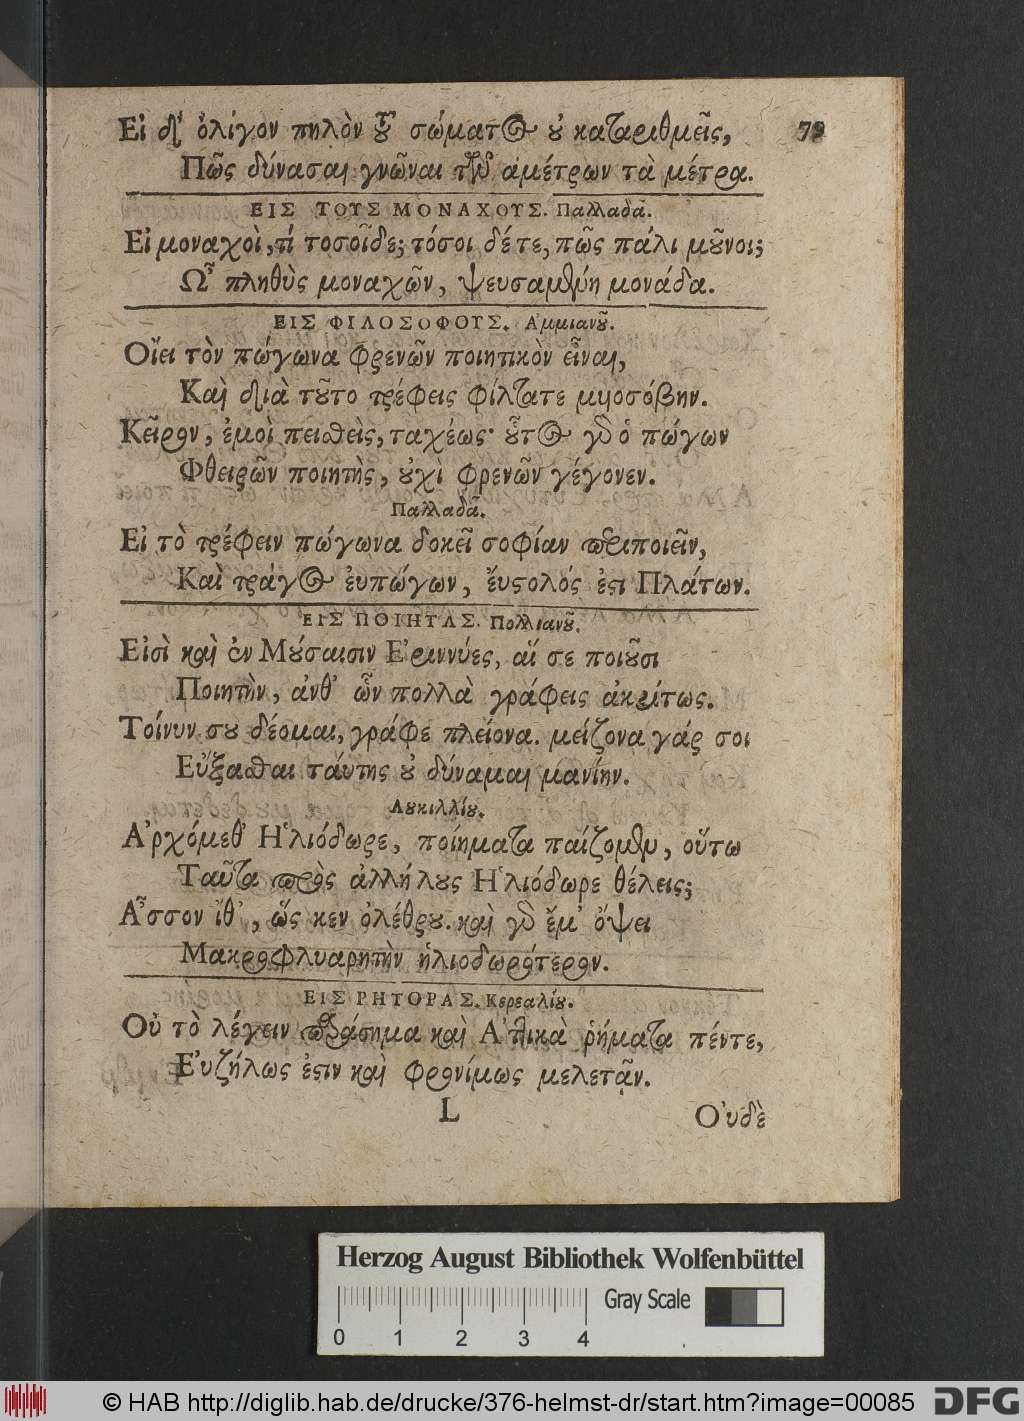 Εἰ δ' ὀλίγον πηλὸν τοῦ σώματος οὐ καταριθμεῖς,
79
Πῶς δύνασαι γνῶναι τῶν ἀμέτρων τὰ μέτρα.
ΕΙΣ ΤΟΥΣ ΜΟΝΑΧΟΥΣ. Παλλαδᾶ.
Εἰ μοναχοὶ, τί τοσοῖδε; τόσοι δέ τε, πῶς πάλι μοῦνοι;
Ὦ πληθὺς μοναχῶν, ψευσαμένη μονάδα.
ΕΙΣ ΦΙΛΟΣΟΦΟΥΣ. Ἀμμιανοῦ.
Οἴει τὸν πώγωνα φρενῶν ποιητικὸν εἶναι,
Καὶ διὰ τοῦτο τρέφεις φίλτατε μυοσόβην.
Κεῖρον, ἐμοὶ πειθεὶς, ταχέως· οὗτος γὰρ ὁ πώγων
Φθειρῶν ποιητὴς, οὐχὶ φρενῶν γέγονεν.
Παλλαδᾶ.
Εἰ τὸ τρέφειν πώγωνα δοκεῖ σοφίαν περιποιεῖν,
Καὶ τράγος ἐυπώγων, ἔυστολός ἐστι Πλάτων.
ΕΙΣ ΠΟΙΗΤΑΣ. Πολλιανοῦ.
Εἰσὶ καὶ ἐν Μούσαισιν Ἐριννύες, αἵ σε ποιοῦσι
Ποιητὴν, ἀνθ' ὧν πολλὰ γράφεις ἀκρίτως.
Τοίνυν σου δέομαι, γράφε πλείονα. μείζονα γάρ σοι
Εὔξασθαι ταύτης οὐ δύναμαι μανίην.
Λουκιλλίου.
Ἀρχόμεθ' Ἡλιόδωρε, ποίηματα παίζομεν, οὕτω
Ταῦτα πρὸς ἀλλήλους Ἡλιόδωρε θέλεις;
Ἆσσον ἴθ', ὥς κεν ὀλέθρου. καὶ γὰρ ἔμ' ὄψει
Μακροφλυαρητὴν ἡλιοδωρότερον.
ΕΙΣ ΡΗΤΟΡΑΣ. Κερεαλίου.
Οὐ τὸ λέγειν παράσημα καὶ Ἀττικὰ ῥήματα πέντε,
Εὐζήλως ἐστιν καὶ φρονίμως μελετᾷν.
L
Οὐδὲ
Herzog August Bibliothek Wolfenbüttel
Gray Scale
0 1 2 3 4
© HAB http://diglib.hab.de/drucke/376-helmst-dr/start.htm?image=00085
DFG